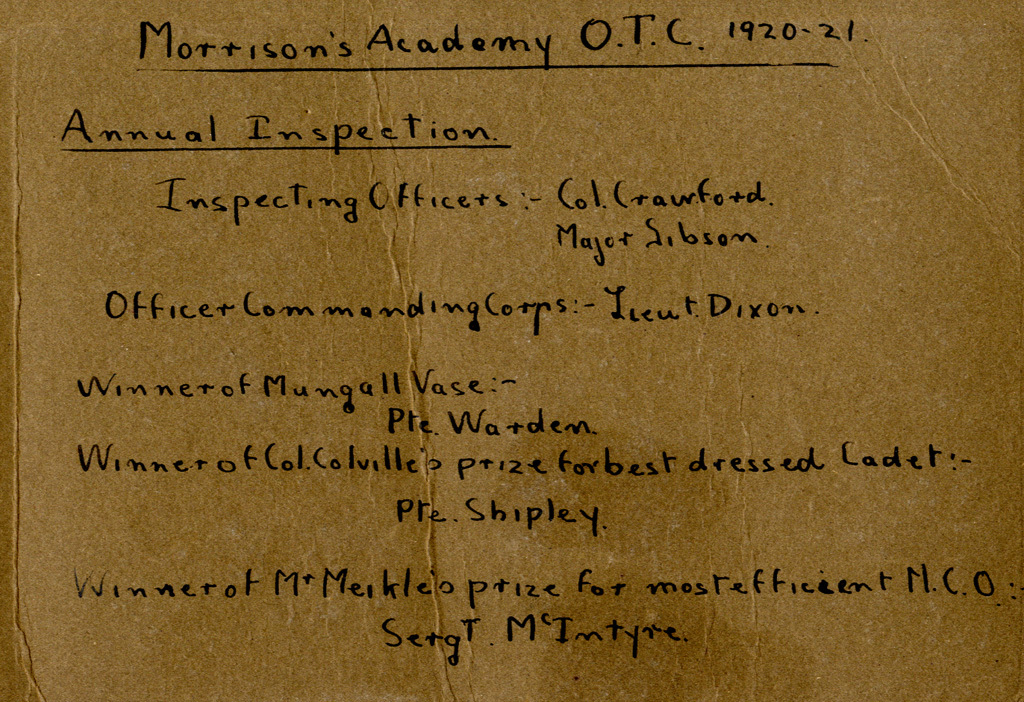 Morrison's Academy O.T.C. 1920-21.
Annual Inspection.
Inspecting Officers:- Col. Crawford.
Major Gibson.
Officer Commanding Corps:- Lieut. Dixon.
Winner of Mungall Vase:-
Pte. Warden.
Winner of Col. Colville's prize for best dressed Cadet:-
Pte. Shipley.
Winner of Mr Meikle's prize for most efficient N.C.O:-
Sergt. McIntyre.